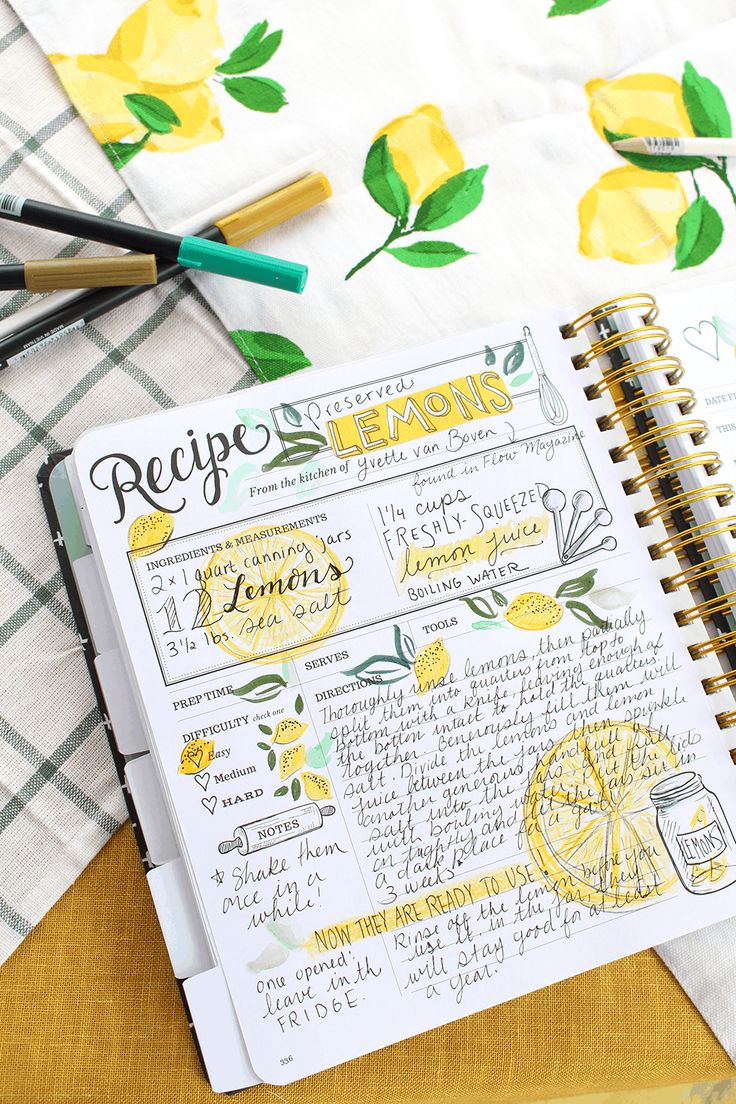 Recipe
Preserved
LEMONS
From the kitchen of Yvette van Boven
found in Flow Magazine
INGREDIENTS & MEASUREMENTS
2 x 1 quart canning jars
12 Lemons
3 1/2 lbs. sea salt
1 1/4 cups
FRESHLY-SQUEEZED
lemon juice
BOILING WATER
PREP TIME
SERVES
TOOLS
DIFFICULTY check one
Easy
Medium
HARD
NOTES
* Shake them
once in a
while!
DIRECTIONS
Thoroughly rinse lemons, then partially
split them into quarters from top to
bottom with a knife, leaving enough of
the bottom intact to hold the quarters
together. Generously fill them with
salt. Divide the lemons and lemon
juice between the jars, then sprinkle
another generous handful of
salt into the jars and fill
with bouling water. Put the lids
on tightly and let the jars sit in
a dark place for a good
3 weeks
LEMONS
NOW THEY ARE READY TO USE
Rinse off the lemon before you
use it. in the jar, they
will stay good for at least
a year.
one opened:
leave in th
FRIDGE.
336
DATE F
THIS
MADE IN VIETNAM